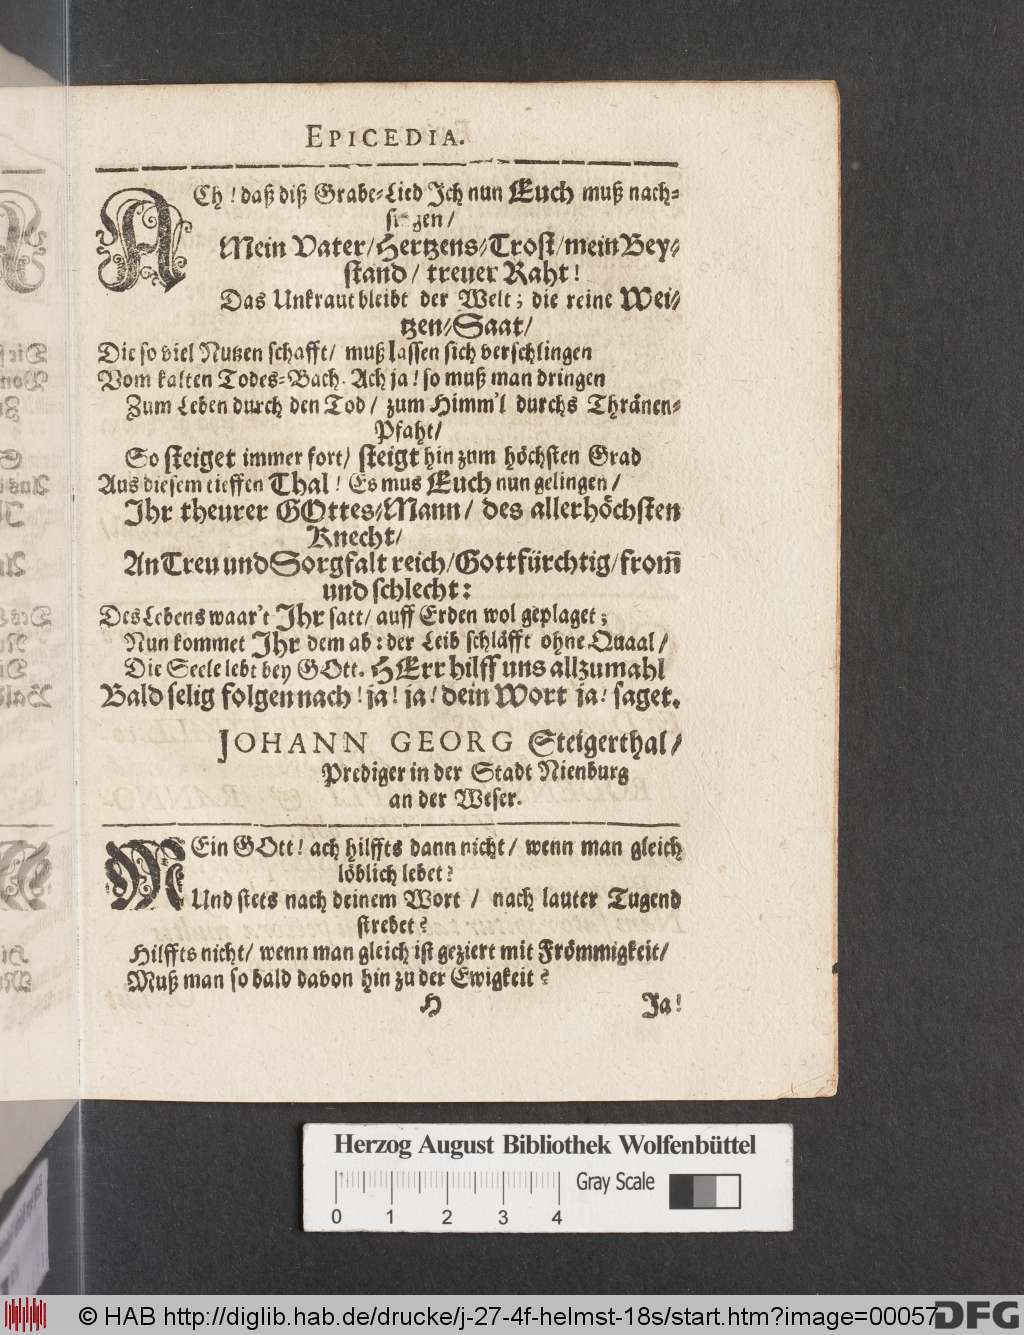 EPICEDIA.
ACh! daß diß Grabe-Lied Ich nun Euch muß nach-
singen/
Mein Vater/Hertzens-Trost/mein Bey-
stand/ treuer Raht!
Das Unkraut bleibt der Welt; die reine Wei-
tzen-Saat/
Die so viel Nutzen schafft/ muß lassen sich verschlingen
Vom kalten Todes-Bach. Ach ja! so muß man dringen
Zum Leben durch den Tod/ zum Himm'l durchs Thränen-
Pfaht/
So steiget immer fort/ steigt hin zum höchsten Grad
Aus diesem tieffen Thal! Es mus Euch nun gelingen/
Ihr theurer GOttes-Mann/ des allerhöchsten
Knecht/
An Treu und Sorgfalt reich/Gottfürchtig/from̃
und schlecht:
Des Lebens waar't Ihr satt/ auff Erden wol geplaget;
Nun kommet Ihr dem ab: der Leib schläfft ohne Quaal/
Die Seele lebt bey GOtt. HErr hilff uns allzumahl
Bald selig folgen nach! ja! ja! dein Wort ja! saget.
JOHANN GEORG Steigerthal/
Prediger in der Stadt Nienburg
an der Weser.
MEin GOtt! ach hilffts dann nicht/ wenn man gleich
löblich lebet?
Und stets nach deinem Wort / nach lauter Tugend
strebet?
Hilffts nicht/ wenn man gleich ist geziert mit Frömmigkeit/
Muß man so bald davon hin zu der Ewigkeit?
H Ja!
Herzog August Bibliothek Wolfenbüttel
Gray Scale
0 1 2 3 4
© HAB http://diglib.hab.de/drucke/j-27-4f-helmst-18s/start.htm?image=00057
DFG